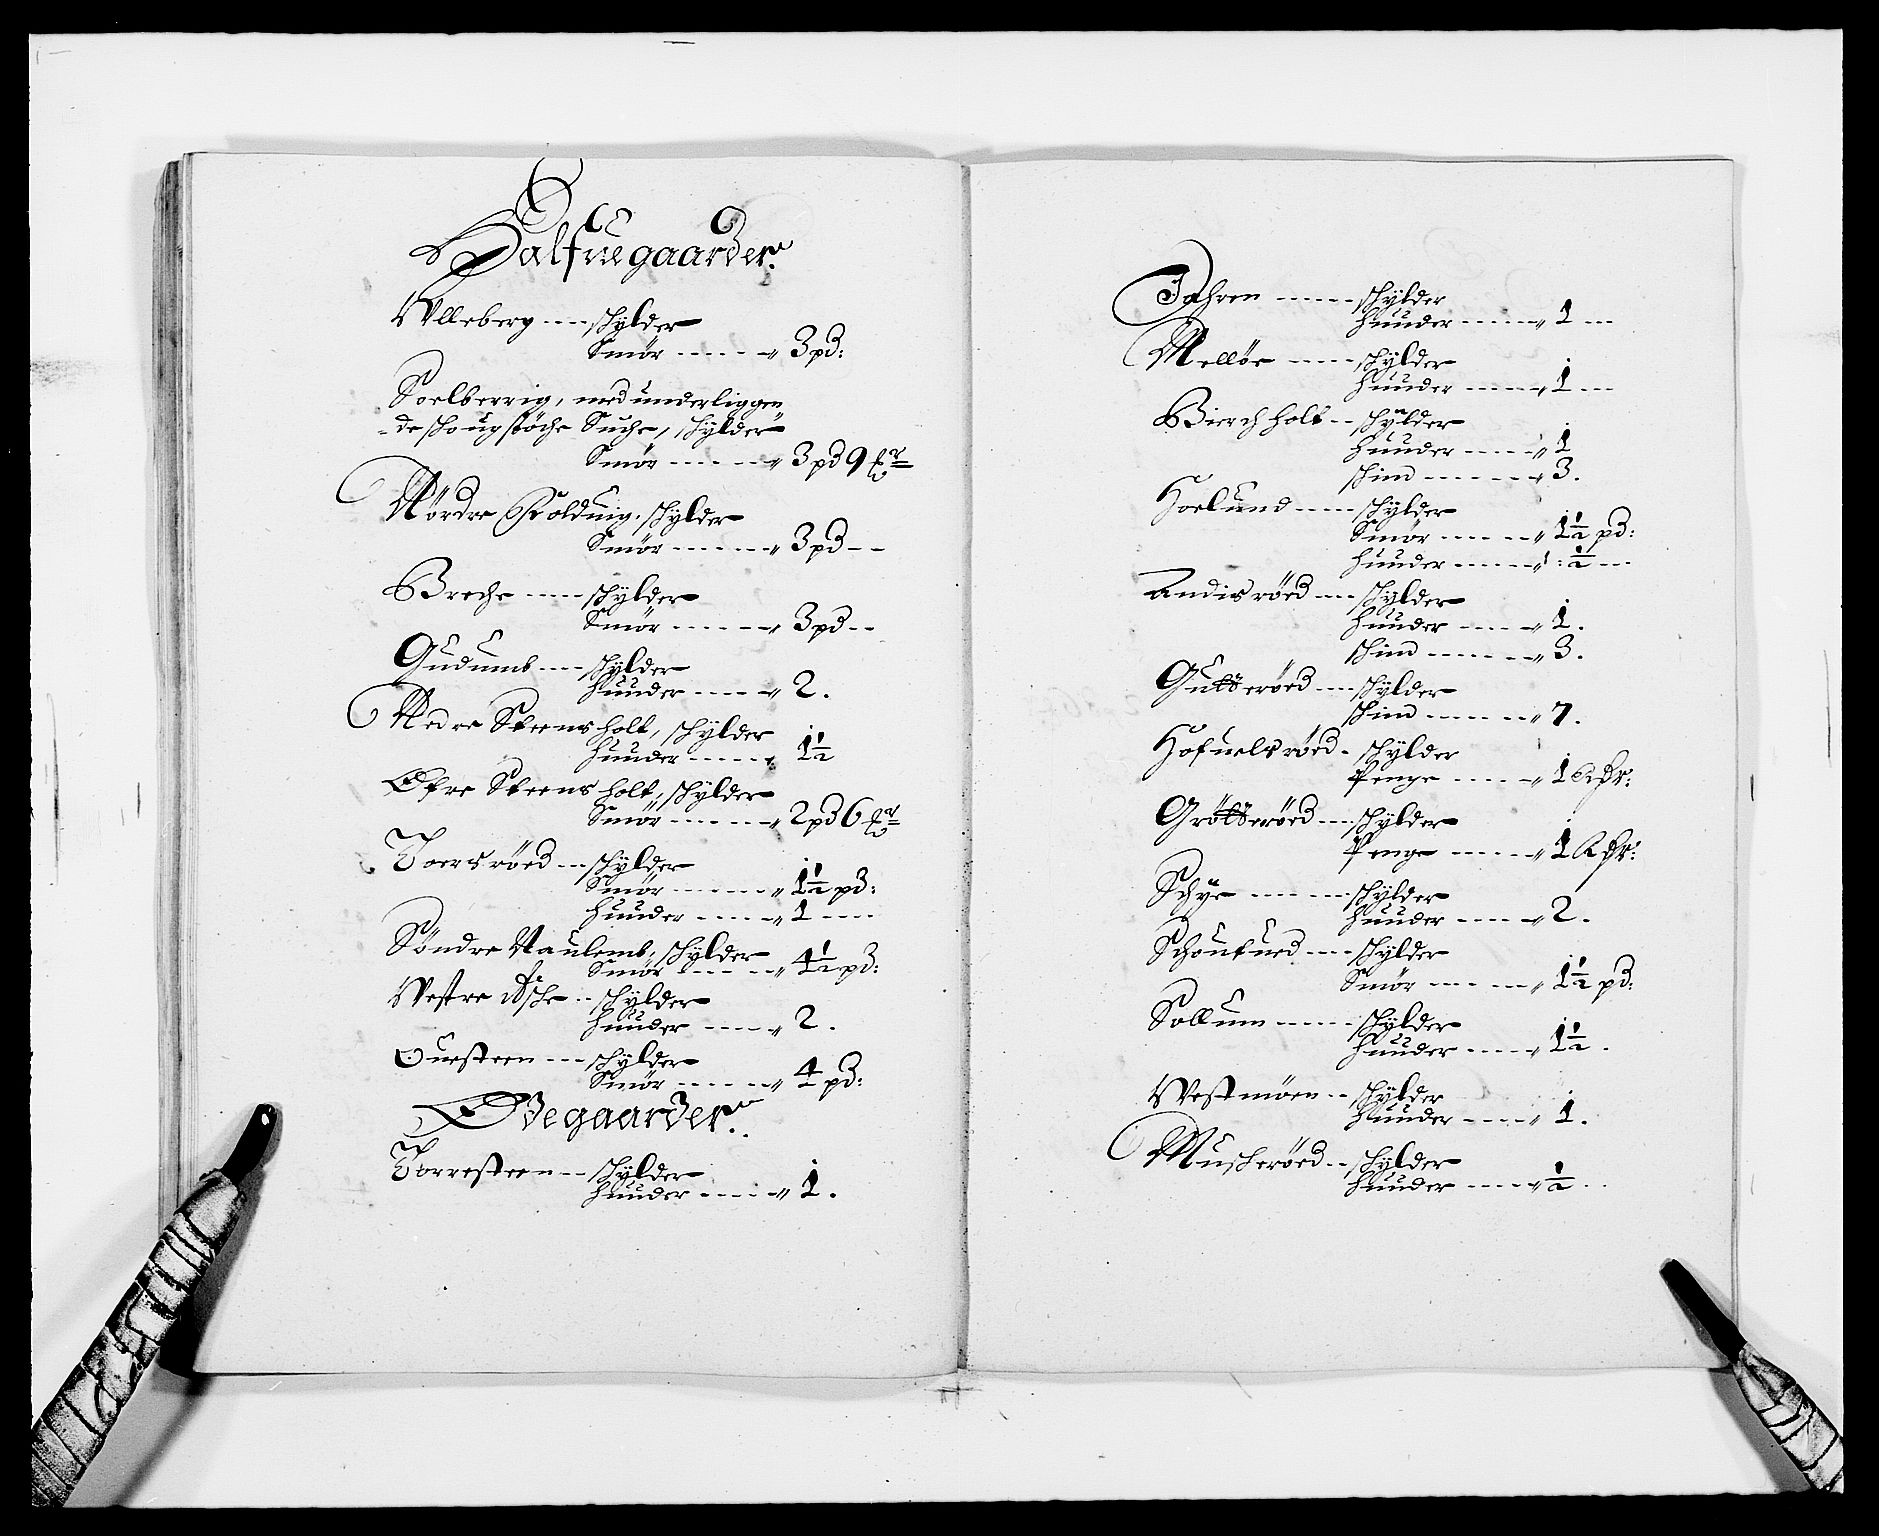 Halfuegaarder.
Ulleberg --- schylder
Smör ------ 3 pd:
Soelberrig, med underliggen
-de schougstöche Suche, schylder
Smör ------ 3 pd 9
Nördre Foldvig. schylder
Smör ------ 3 pd --
Breche ----- schylder
Smör ------ 3 pd --
Gudumb --- schylder
Huuder ----- 2.
Nedre Steensholt, schylder
Huuder ----- 1½
Öfre Steensholt, schylder
Smör ------ 2 pd 6
Toersröed --- schylder
Smör ------ 1½ pd:
Huuder ----- 1 ----
Söndre Naulemb, schylder
Smör ------ 4½ pd:
Westre Aske -- schylder
Huuder ----- 2.
Ouesteen --- schylder
Smör ------ 4 pd:
Ödegaarder.
Torresteen -- schylder
Huuder ----- 1.
Jahren ----- schylder
Huuder ----- 1 ---
Mellöe ----- schylder
Huuder ----- 1 ---
Bierchholt -- schylder
Huuder ----- 1
schind ------ 3.
Hoelund ---- schylder
Smör ------ 1½ pd:
Huuder ----- : ½ ---
Andisröed --- schylder
Huuder ----- 1.
schind ------ 3.
Gutteröed --- schylder
schind ------ 7.
Hofuelsröed - schylder
Penge -----
Grötteröed --- schylder
Penge -----
Schye ------ schylder
Huuder ----- 2.
Schoufued --- schylder
Smör ------ 1½ pd:
Sollum ----- schylder
Huuder ----- 1½.
Westmöen -- schylder
Huuder ----- 1.
Muscheröed -- schylder
Huuder ----- ½ --